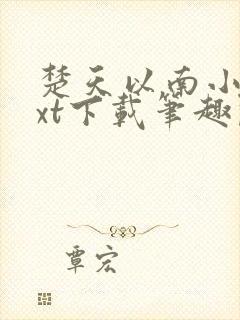 楚天以南小
xt下载笔趣
覃宏